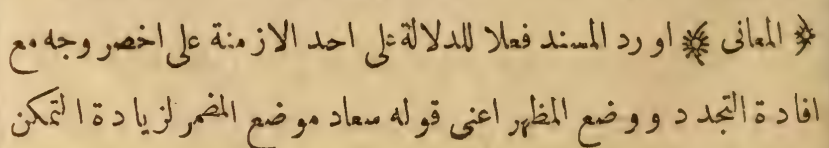 ﴿ المعانى ﴾ اورد المسند فعلا للدلالة على احد الازمنة على اخصر وجه مع
افادة التجدد ووضع المظهر اعنى قوله سعاد موضع المضمر لزيادة التمكن